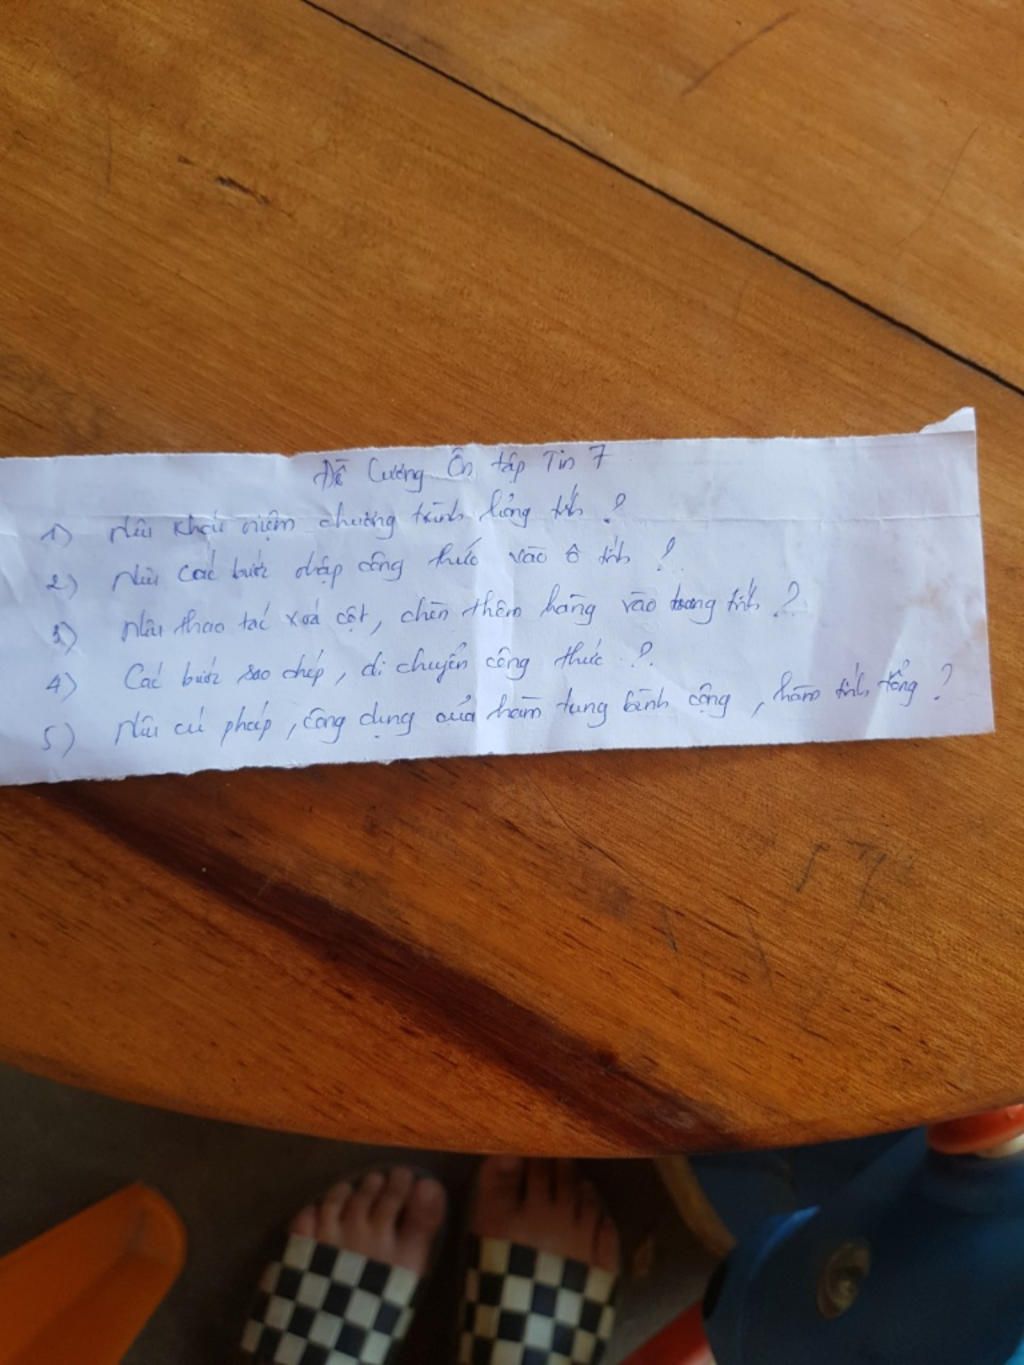 Đề Cương Ôn tập Tin 7
1) Nêu khái niệm chương trình bảng tính ?
2) Nêu các bước nhập công thức vào ô tính ?
3) Nêu thao tác xoá cột, chèn thêm hàng vào trang tính ?
4) Các bước sao chép, di chuyển công thức ?
5) Nêu cú pháp, công dụng của hàm trung bình cộng, hàm tính tổng ?